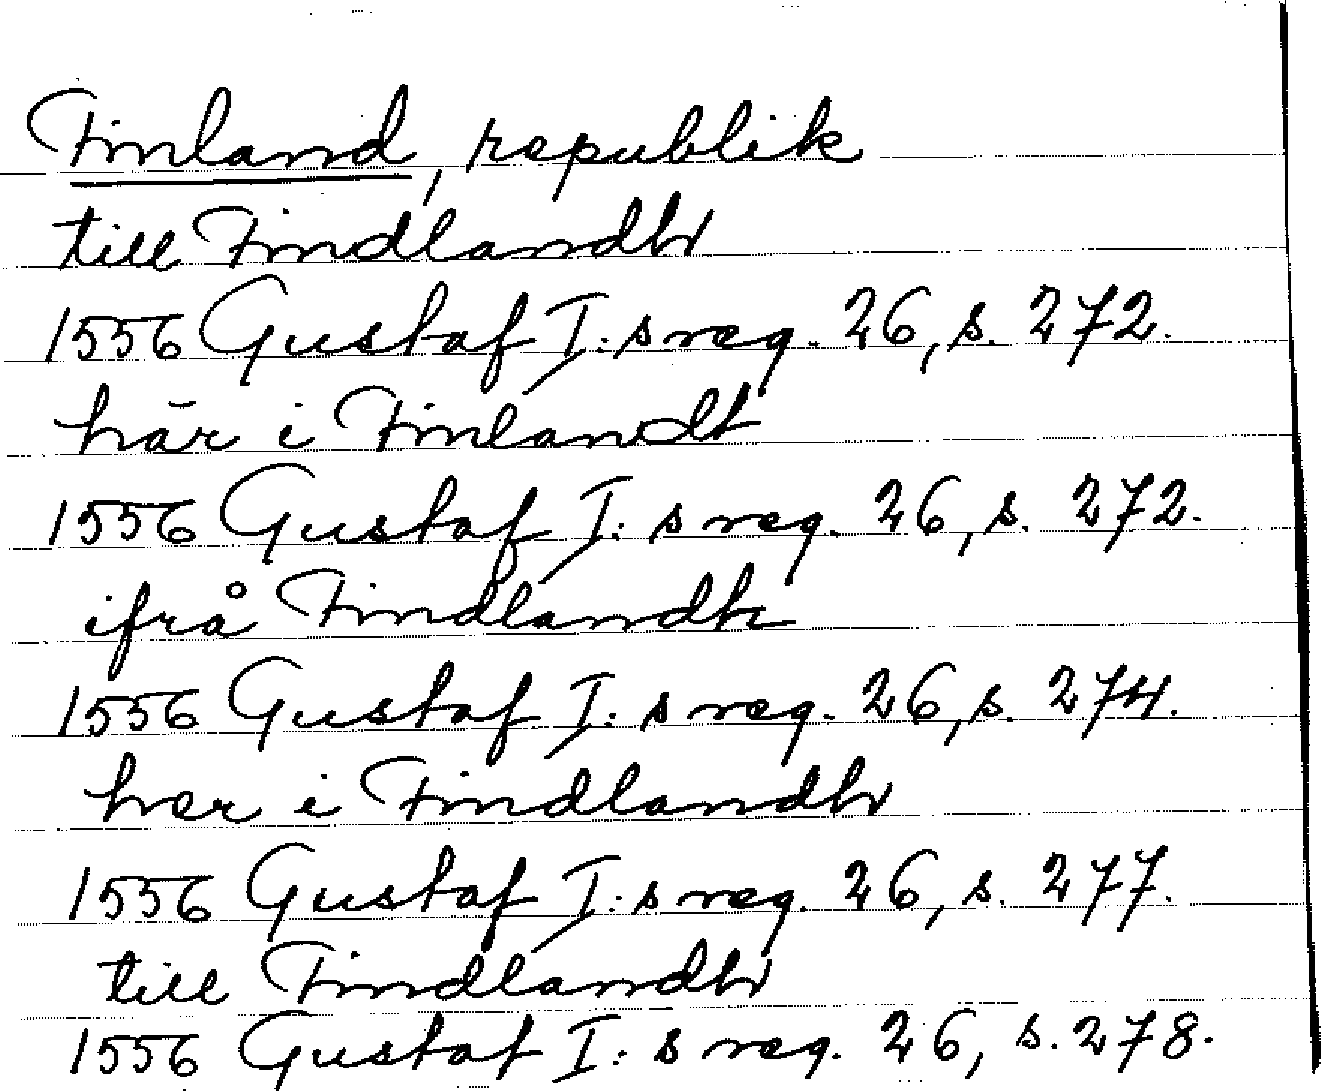 Finland, republik
till Findlandh
1556 Gustaf I:s reg. 26, s. 272.
här i Finlandt
1556 Gustaf I:s reg. 26, s. 272.
ifrå Findlandh
1556 Gustaf I:s reg. 26, s. 274.
her i Findlandh
1556 Gustaf I:s reg. 26, s. 277.
till Findlandh
1556 Gustaf I:s reg. 26, s. 278.